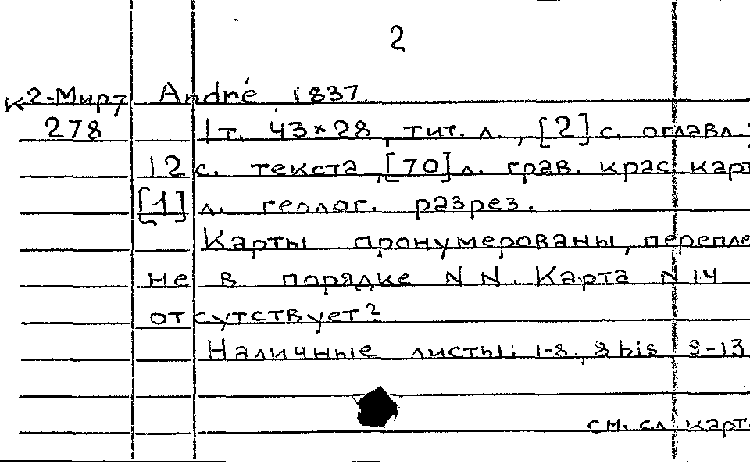 2
К2-Мирт André 1837
278 1 т. 43×28, тит. л., [2] с. оглавл.,
12 с. текста, [70] л. грав. крас. карт
[1] л. геолог. разрез.
Карты пронумерованы, перепле
не в порядке NN. Карта N 14
отсутствует?
Наличные листы: 1-8, 8 bis, 9-13
см. сл. карт